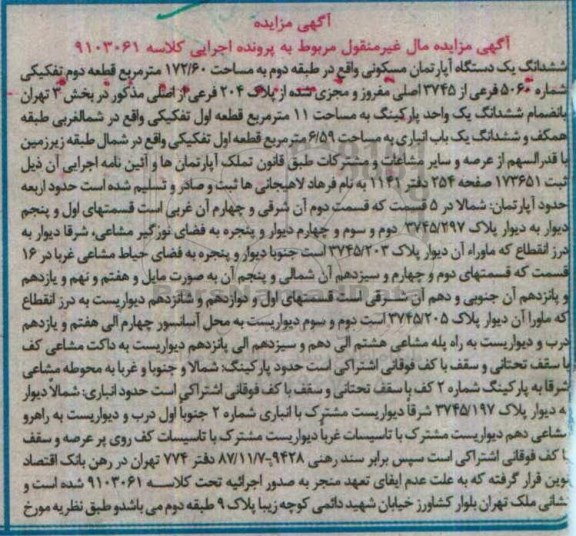 آگهی مزایده
آگهی مزایده مال غیرمنقول مربوط به پرونده اجرایی کلاسه ۹۱۰۳۰۶۱
ششدانگ یک دستگاه آپارتمان مسکونی واقع در طبقه دوم به مساحت ۱۷۲/۶۰ مترمربع قطعه دوم تفکیکی
شماره ۵۰۶۰ فرعی از ۳۷۴۵ اصلی مفروز و مجزی شده از پلاک ۲۰۴ فرعی از اصلی مذکور در بخش ۳ تهران
بانضمام ششدانگ یک واحد پارکینگ به مساحت ۱۱ مترمربع قطعه اول تفکیکی واقع در شمالغربی طبقه
همکف و ششدانگ یک باب انباری به مساحت ۶/۵۹ مترمربع قطعه اول تفکیکی واقع در شمال طبقه زیرزمین
با قدرالسهم از عرصه و سایر مشاعات و مشترکات طبق قانون تملک آپارتمان ها و آئین نامه اجرایی آن ذیل
ثبت ۱۷۳۶۵۱ صفحه ۲۵۴ دفتر ۱۱۴۱ به نام فرهاد لاهیجانی ها ثبت و صادر و تسلیم شده است حدود اربعه
حدود آپارتمان: شمالا در ۵ قسمت که قسمت دوم آن شرقی و چهارم آن غربی است قسمتهای اول و پنجم
دیوار به دیوار پلاک ۳۷۴۵/۲۹۷ دوم و سوم و چهارم دیوار و پنجره به فضای نورگیر مشاعی، شرقا دیوار به
درز انقطاع که ماوراء آن دیوار پلاک ۳۷۴۵/۲۰۳ است جنوبا دیوار و پنجره به فضای حیاط مشاعی غربا در ۱۶
قسمت که قسمتهای دوم و چهارم و سیزدهم آن شمالی و پنجم آن به صورت مایل و هفتم و نهم و یازدهم
و پانزدهم آن جنوبی و دهم آن شرقی است قسمتهای اول و دوازدهم و شانزدهم دیواریست به درز انقطاع
که ماورا آن دیوار پلاک ۳۷۴۵/۲۰۵ است دوم و سوم دیواریست به محل آسانسور چهارم الی هفتم و یازدهم
درب و دیواریست به راه پله مشاعی هشتم الی دهم و سیزدهم الی پانزدهم دیواریست به داکت مشاعی کف
با سقف تحتانی و سقف با کف فوقانی اشتراکی است حدود پارکینگ: شمالا و جنوبا و غربا به محوطه مشاعی
شرقا به پارکینگ شماره ۲ کف با سقف تحتانی و سقف با کف فوقانی اشتراکی است حدود انباری: شمالاً دیوار
به دیوار پلاک ۳۷۴۵/۱۹۷ شرقاً دیواریست مشترک با انباری شماره ۲ جنوباً اول درب و دیواریست به راهرو
مشاعی دهم دیواریست مشترک با تاسیسات غرباً دیواریست مشترک با تاسیسات کف روی پر عرصه و سقف
با کف فوقانی اشتراکی است سپس برابر سند رهنی ۹۴۲۸-۸۷/۱۱/۷ دفتر ۷۷۴ تهران در رهن بانک اقتصاد
نوین قرار گرفته که به علت عدم ایفای تعهد منجر به صدور اجرائیه تحت کلاسه ۹۱۰۳۰۶۱ شده است و
نشانی ملک تهران بلوار کشاورز خیابان شهید دائمی کوچه زیبا پلاک ۹ طبقه دوم می باشدو طبق نظریه مورخ